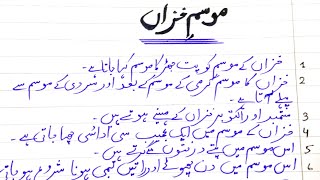 موسمِ خزاں
1 خزاں کے موسم کو پت جھڑ کا موسم کہا جاتا ہے۔
2 خزاں کا موسم گرمی کے موسم کے بعد اور سردی کے موسم سے
پہلے آتا ہے۔
3 ستمبر اور اکتوبر خزاں کے مہینے ہوتے ہیں۔
4 خزاں کے موسم میں ایک عجیب سی اداسی چھا جاتی ہے۔
5 اس موسم میں پتے درختوں سے گرتے ہیں۔
6 اس موسم میں دن چھوٹے اور راتیں لمبی ہونا شروع ہو جاتی